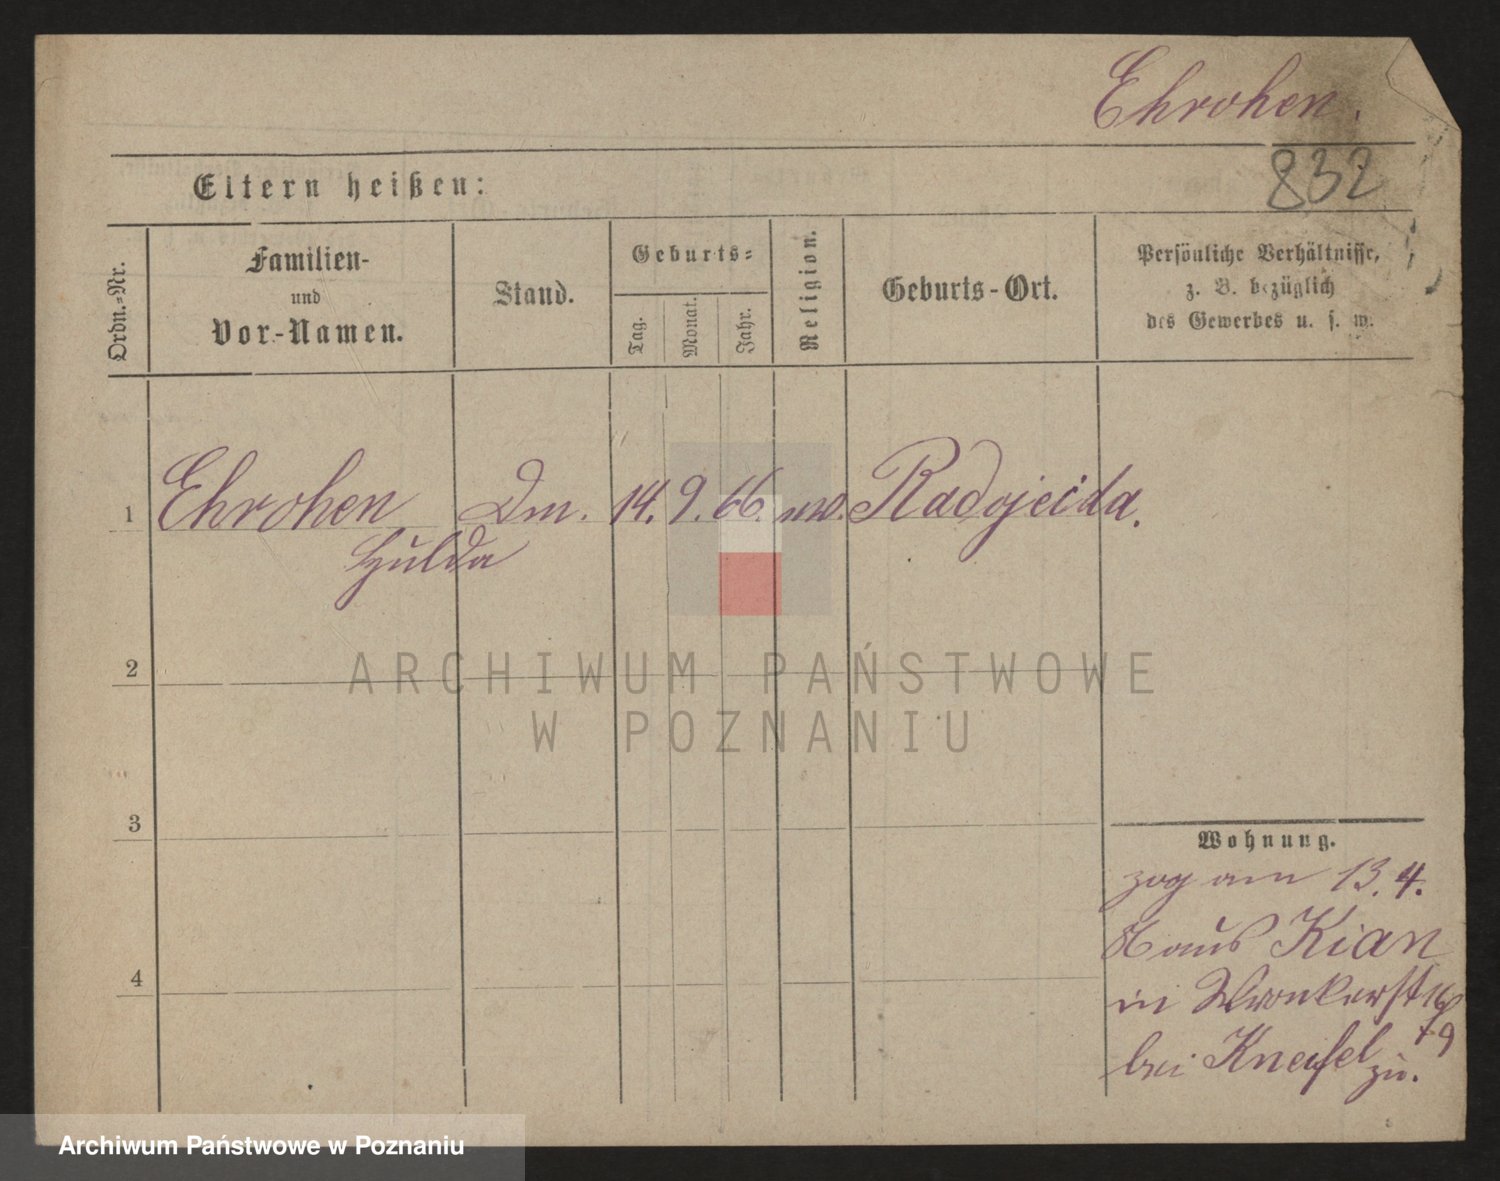 Ehrohen.
832
Eltern heißen:
Ordn.-Nr.
Familien-
und
Vor-Namen.
Stand.
Geburts-
Tag.
Monat.
Jahr.
Religion.
Geburts-Ort.
Persönliche Verhältnisse,
z. B. bezüglich
des Gewerbes u. s. w.
1 Ehrohen 14. 9. 66. Radojeida.
Hulda
ARCHIWUM PAŃSTWOWE
W POZNANIU
2
3
4
Wohnung.
zog am 13. 4.
aus Kian
in Wronkerst
bei Kneifel zu.
Archiwum Państwowe w Poznaniu